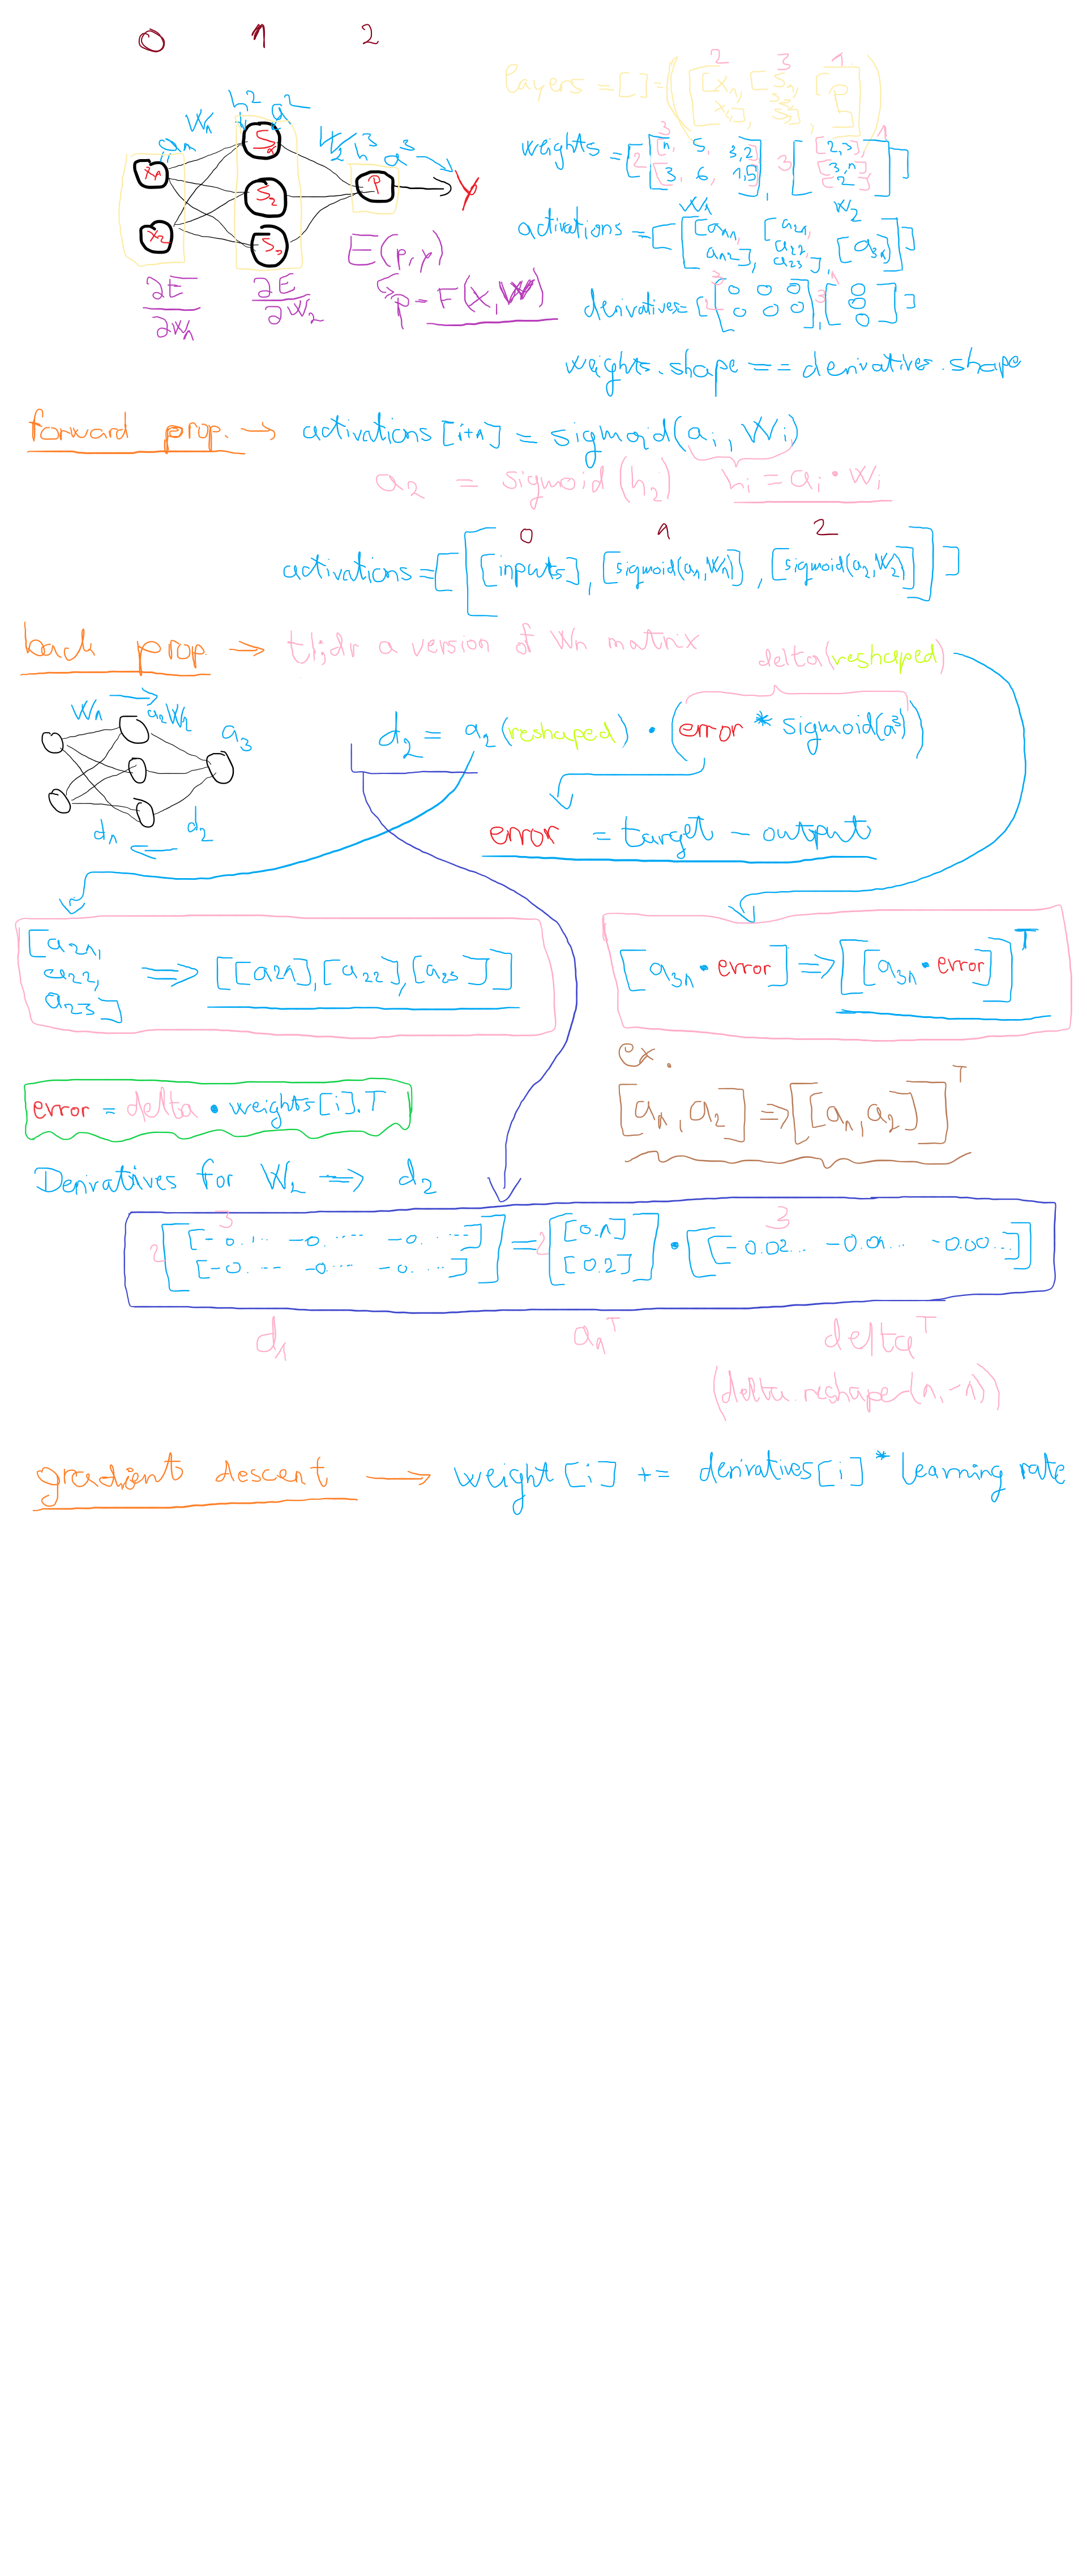 0 1 2
layers = [] = ([[x1, x2], [S1, S2, S3], [P]])
2 3 1
W1 h2 a2 W2 h3 a3
a1
x1 S1
x2 S2 P Y
S3
weights = [[1, 5, 3,2] [3, 6, 1,5], [[2,3] [3,1] [2]]]
2 3 3 1
W1 W2
activations = [[[a11, a12], [a21, a22, a23], [a31]]]
E(p,y)
p = F(X,W)
∂E/∂W1 ∂E/∂W2
derivatives = [[0 0 0 0 0 0], [0 0 0]]
2 3 3 1
weights.shape == derivatives.shape
forward prop. → activations[i+1] = sigmoid(ai, Wi)
a2 = sigmoid(h2) hi = ai · Wi
0 1 2
activations = [[[inputs], [sigmoid(a1,W1)], [sigmoid(a2,W2)]]]
back prop. → tl;dr a version of Wn matrix
delta(reshaped)
W1 a2 W2 a3
d2 = a2(reshaped) · (error * sigmoid(a3))
d1 d2
error = target - output
[a21, a22, a23] => [[a21],[a22],[a23]]
[a31 · error] => [[a31 · error]]T
ex.
[a1, a2] => [[a1, a2]]T
error = delta · weights[i].T
Derivatives for W2 => d2
3 3
2 [[-0.1... -0..... -0.....] [-0.... -0.... -0....]] = 2 [[0.1] [0.2]] · [[-0.02... -0.01... -0.00...]]
d1 a1T deltaT
(delta.reshape(1,-1))
gradient descent → weight[i] += derivatives[i] * learning rate